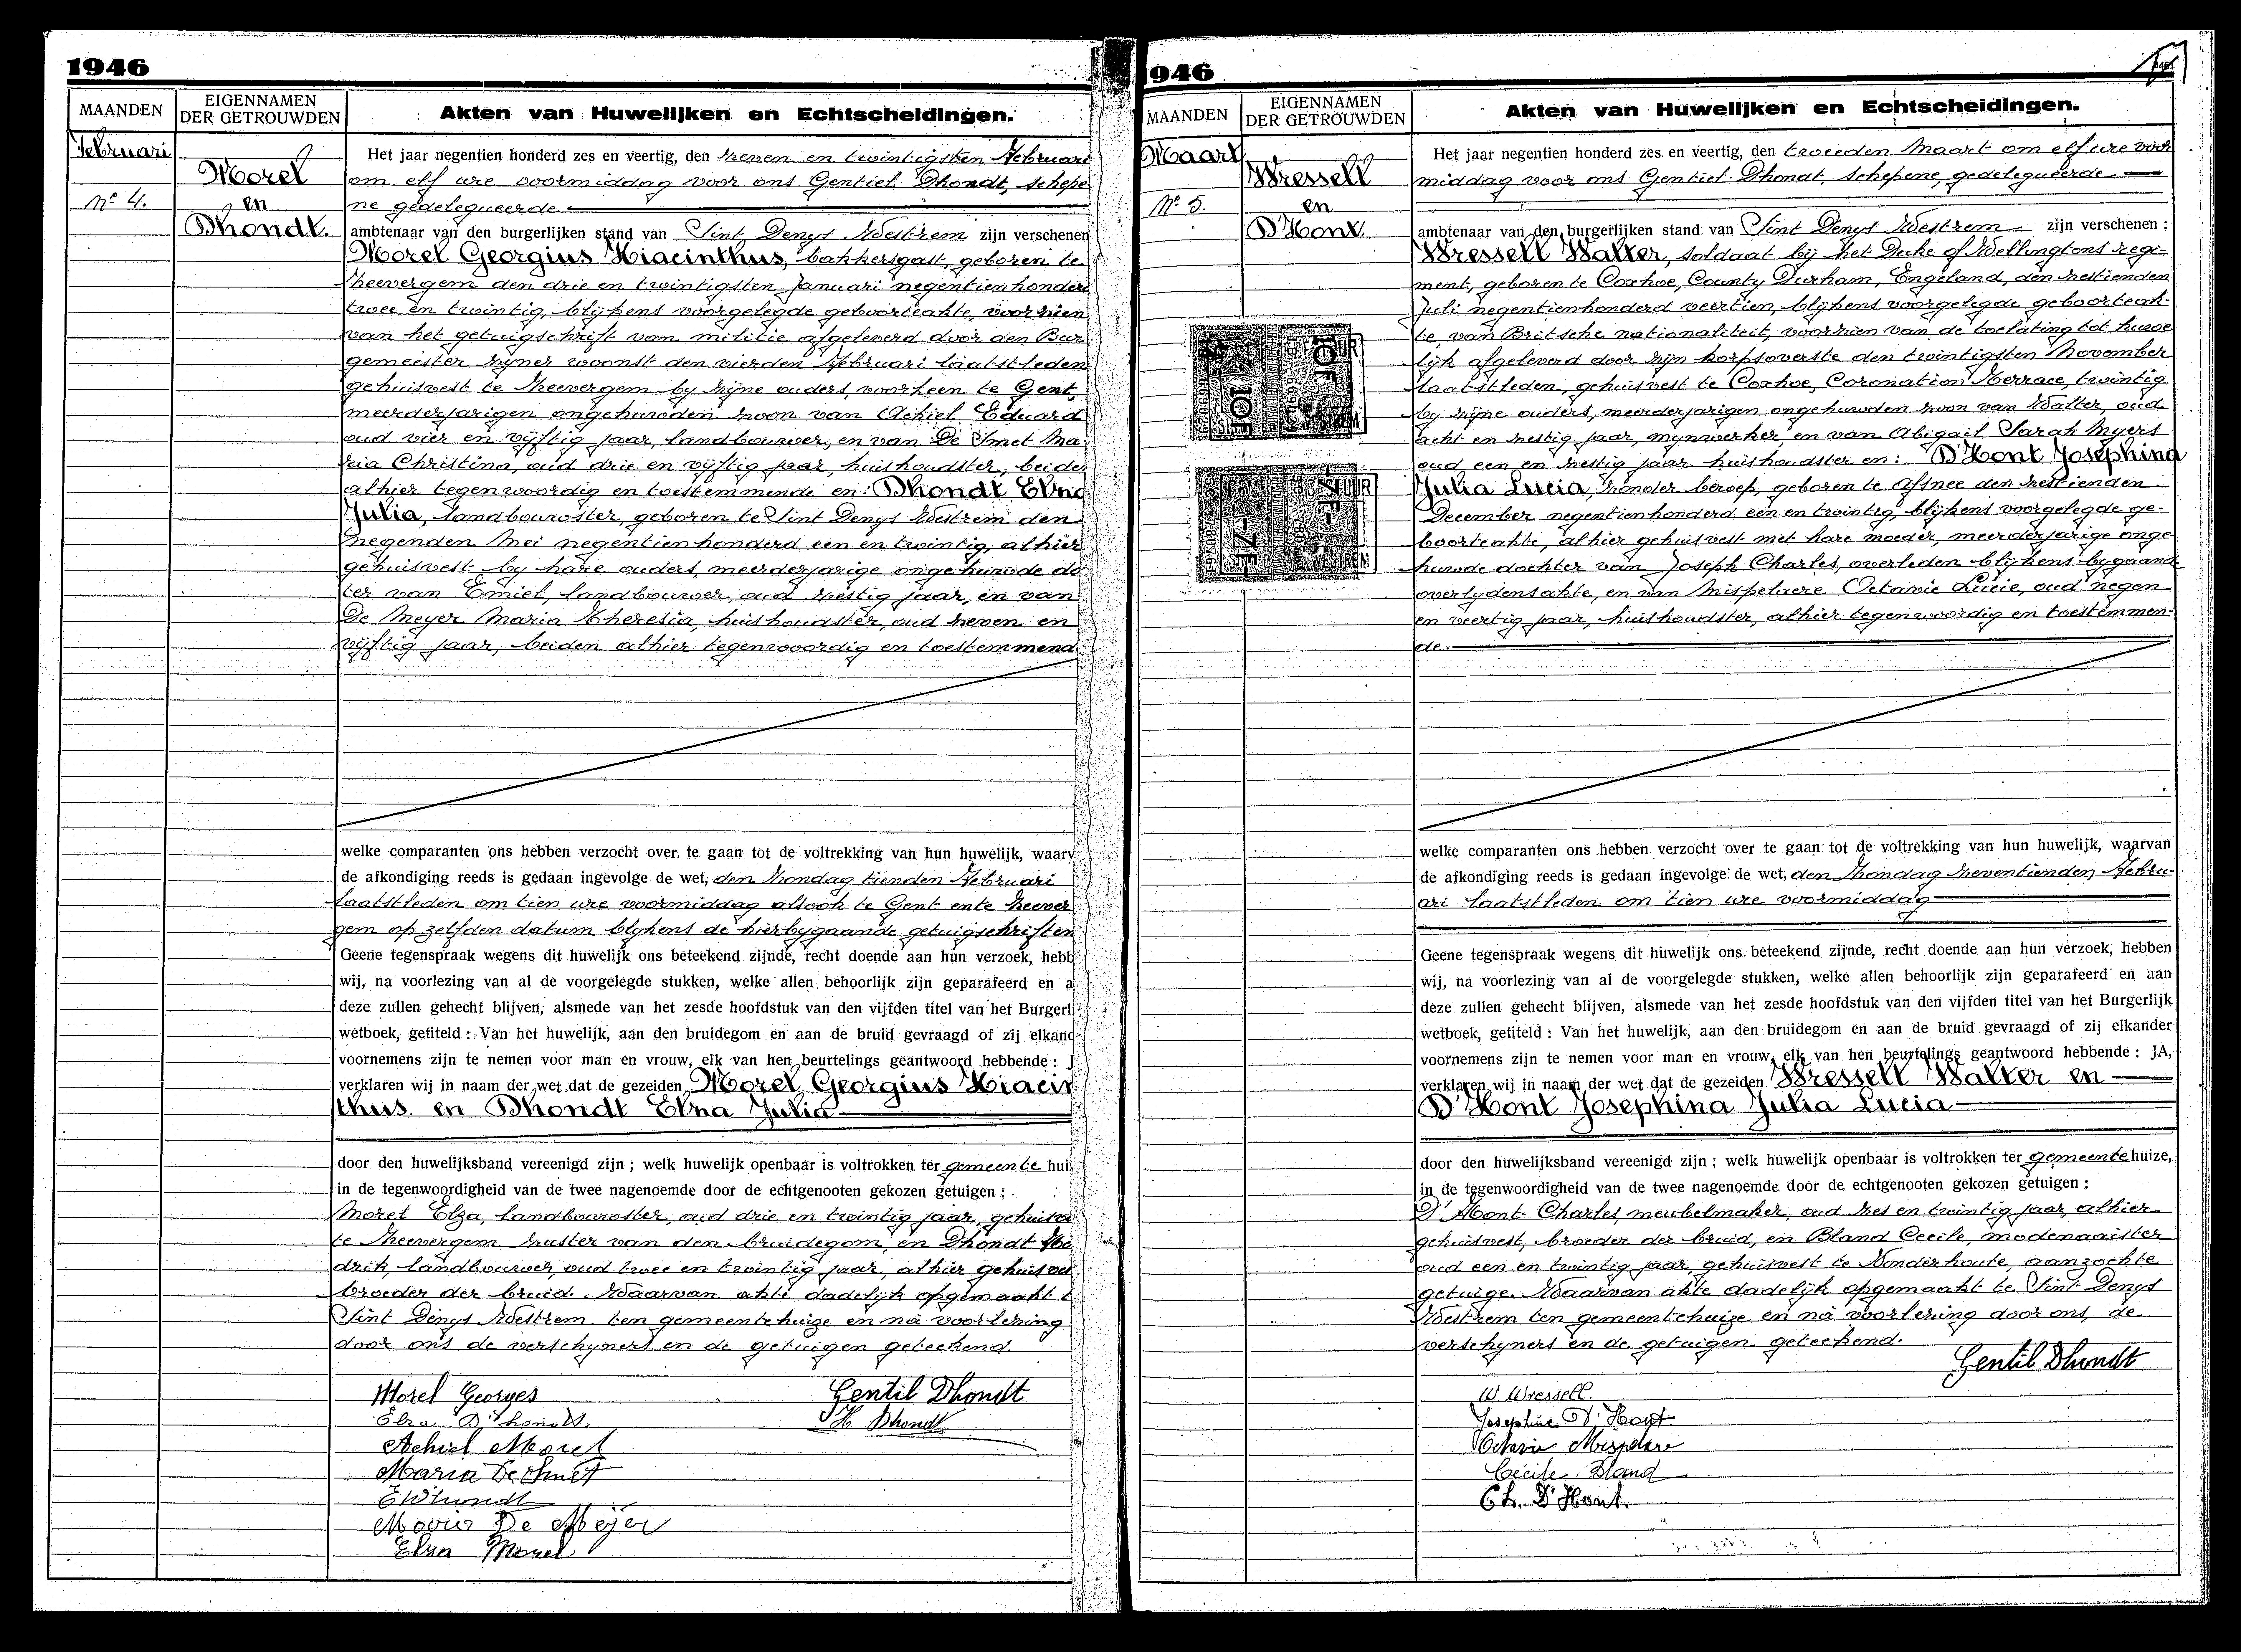 1946
MAANDEN
EIGENNAMEN
DER GETROUWDEN
Akten van Huwelijken en Echtscheidingen.
Februari
Nº 4.
Morel
en
Dhondt.
Het jaar negentien honderd zes en veertig, den zeven en twintigsten Februari
om elf ure voormiddag voor ons Gentiel Dhondt, schepe
ne gedelegueerde
ambtenaar van den burgerlijken stand van Sint Denys Westrem zijn verschenen
Morel Georgius Hiacinthus, bakkersgast, geboren te
Zheevergem den drie en twintigsten Januari negentienhonder
twee en twintig, blijkens voorgelegde geboorteakte, voorzien
van het getuigschrift van militie afgeleverd door den Bur
gemeester zijner woonst den vierden Februari laatstleden
gehuisvest te Zheevergem by zijne ouders, voorheen te Gent,
meerderjarigen ongehuwden zoon van Achiel Eduard
oud vier en vijftig jaar, landbouwer, en van De Smet Ma
ria Christina, oud drie en vijftig jaar, huishoudster, beide
alhier tegenwoordig en toestemmende en: Dhondt Elza
Julia, landbouwster, geboren te Sint Denys Westrem den
negenden Mei negentienhonderd een en twintig, alhier
gehuisvest by hare ouders, meerderjarige ongehuwde do
ter van Emiel, landbouwer, oud zestig jaar, en van
De Meyer Maria Theresia, huishoudster, oud zeven en
vijftig jaar, beiden alhier tegenwoordig en toestemmend
welke comparanten ons hebben verzocht over te gaan tot de voltrekking van hun huwelijk, waarv
de afkondiging reeds is gedaan ingevolge de wet, den Zondag tienden Februari
laatstleden om tien ure voormiddag alsook te Gent en te Zheever
gem op zelfden datum blykens de hierbygaande getuigschriften
Geene tegenspraak wegens dit huwelijk ons beteekend zijnde, recht doende aan hun verzoek, hebb
wij, na voorlezing van al de voorgelegde stukken, welke allen behoorlijk zijn geparafeerd en a
deze zullen gehecht blijven, alsmede van het zesde hoofdstuk van den vijfden titel van het Burgerl
wetboek, getiteld : Van het huwelijk, aan den bruidegom en aan de bruid gevraagd of zij elkand
voornemens zijn te nemen voor man en vrouw, elk van hen beurtelings geantwoord hebbende : J
verklaren wij in naam der wet dat de gezeiden Morel Georgius Hiacin
thus en Dhondt Elza Julia
door den huwelijksband vereenigd zijn ; welk huwelijk openbaar is voltrokken ter gemeente hui
in de tegenwoordigheid van de twee nagenoemde door de echtgenooten gekozen getuigen :
Morel Elza, landbouwster, oud drie en twintig jaar, gehuisve
te Zheevergem zuster van den bruidegom, en Dhondt He
drik, landbouwer, oud twee en twintig jaar, alhier gehuisves
broeder der bruid. Waarvan akte dadelijk opgemaakt t
Sint Denys Westrem ten gemeentehuize en na voorlezing
door ons de verschyners en de getuigen geteekend.
Morel Georges
Gentil Dhondt
Elza D'hondt.
H Dhondt
Achiel Morel
Maria De Smet
E Dhondt
Maria De Meyer
Elza Morel
946
MAANDEN
EIGENNAMEN
DER GETROUWDEN
Akten van Huwelijken en Echtscheidingen.
Maart
Nº 5.
Wressell
en
D'Hont.
Het jaar negentien honderd zes en veertig, den tweeden Maart om elf ure voor
middag voor ons Gentiel Dhondt, schepene, gedelegueerde
ambtenaar van den burgerlijken stand van Sint Denys Westrem zijn verschenen :
Wressell Walter, soldaat bij het Duke of Wellingtons regi-
ment, geboren te Coxhoe, County Durham, Engeland, den zestienden
Juli negentienhonderd veertien, blijkens voorgelegde geboorteak-
te, van Britsche nationaliteit, voorzien van de toelating tot huwe
lijk afgeleverd door zijn korpsoverste den twintigsten November
laatstleden, gehuisvest te Coxhoe, Coronation Terrace, twintig
by zijne ouders, meerderjarigen ongehuwden zoon van Walter, oud
acht en zestig jaar, mynwerker, en van Abigail Sarah Myers
oud een en zestig jaar huishoudster en: D'Hont Josephina
Julia Lucia, zonder beroep, geboren te Afsnee den zestienden
December negentienhonderd een en twintig, blijkens voorgelegde ge-
boorteakte, alhier gehuisvest met hare moeder, meerderjarige onge
huwde dochter van Joseph Charles, overleden blijkens bygaande
overlydensakte, en van Mispelaere Octavie Lucie, oud negen
en veertig jaar, huishoudster, alhier tegenwoordig en toestemmen-
de.
welke comparanten ons hebben verzocht over te gaan tot de voltrekking van hun huwelijk, waarvan
de afkondiging reeds is gedaan ingevolge de wet, den Zondag zeventienden Febru-
ari laatstleden om tien ure voormiddag
Geene tegenspraak wegens dit huwelijk ons beteekend zijnde, recht doende aan hun verzoek, hebben
wij, na voorlezing van al de voorgelegde stukken, welke allen behoorlijk zijn geparafeerd en aan
deze zullen gehecht blijven, alsmede van het zesde hoofdstuk van den vijfden titel van het Burgerlijk
wetboek, getiteld : Van het huwelijk, aan den bruidegom en aan de bruid gevraagd of zij elkander
voornemens zijn te nemen voor man en vrouw, elk van hen beurtelings geantwoord hebbende : JA,
verklaren wij in naam der wet dat de gezeiden Wressell Walter en
D'Hont Josephina Julia Lucia
door den huwelijksband vereenigd zijn ; welk huwelijk openbaar is voltrokken ter gemeente huize,
in de tegenwoordigheid van de twee nagenoemde door de echtgenooten gekozen getuigen :
D'Hont Charles, meubelmaker, oud zes en twintig jaar, alhier
gehuisvest, broeder der bruid, en Bland Cecile, modenaaister
oud een en twintig jaar, gehuisvest te Vinderhoute, aanzochte
getuige. Waarvan akte dadelyk opgemaakt te Sint Denys
Westrem ten gemeentehuize en na voorlezing door ons, de
verschyners en de getuigen geteekend.
Gentil Dhondt
W. Wressell.
Josephine D'Hont
Octavie Mispelare
Cécile Bland
Ch. D'Hont.